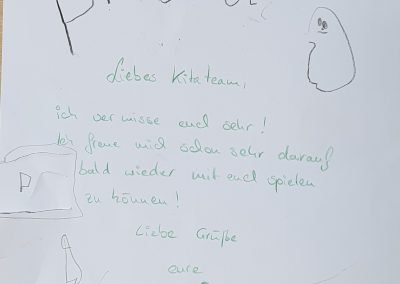 Liebes Kitateam,
ich vermisse euch sehr!
Ich freue mich schon sehr darauf
bald wieder mit euch spielen
P
zu können!
Liebe Grüße
eure